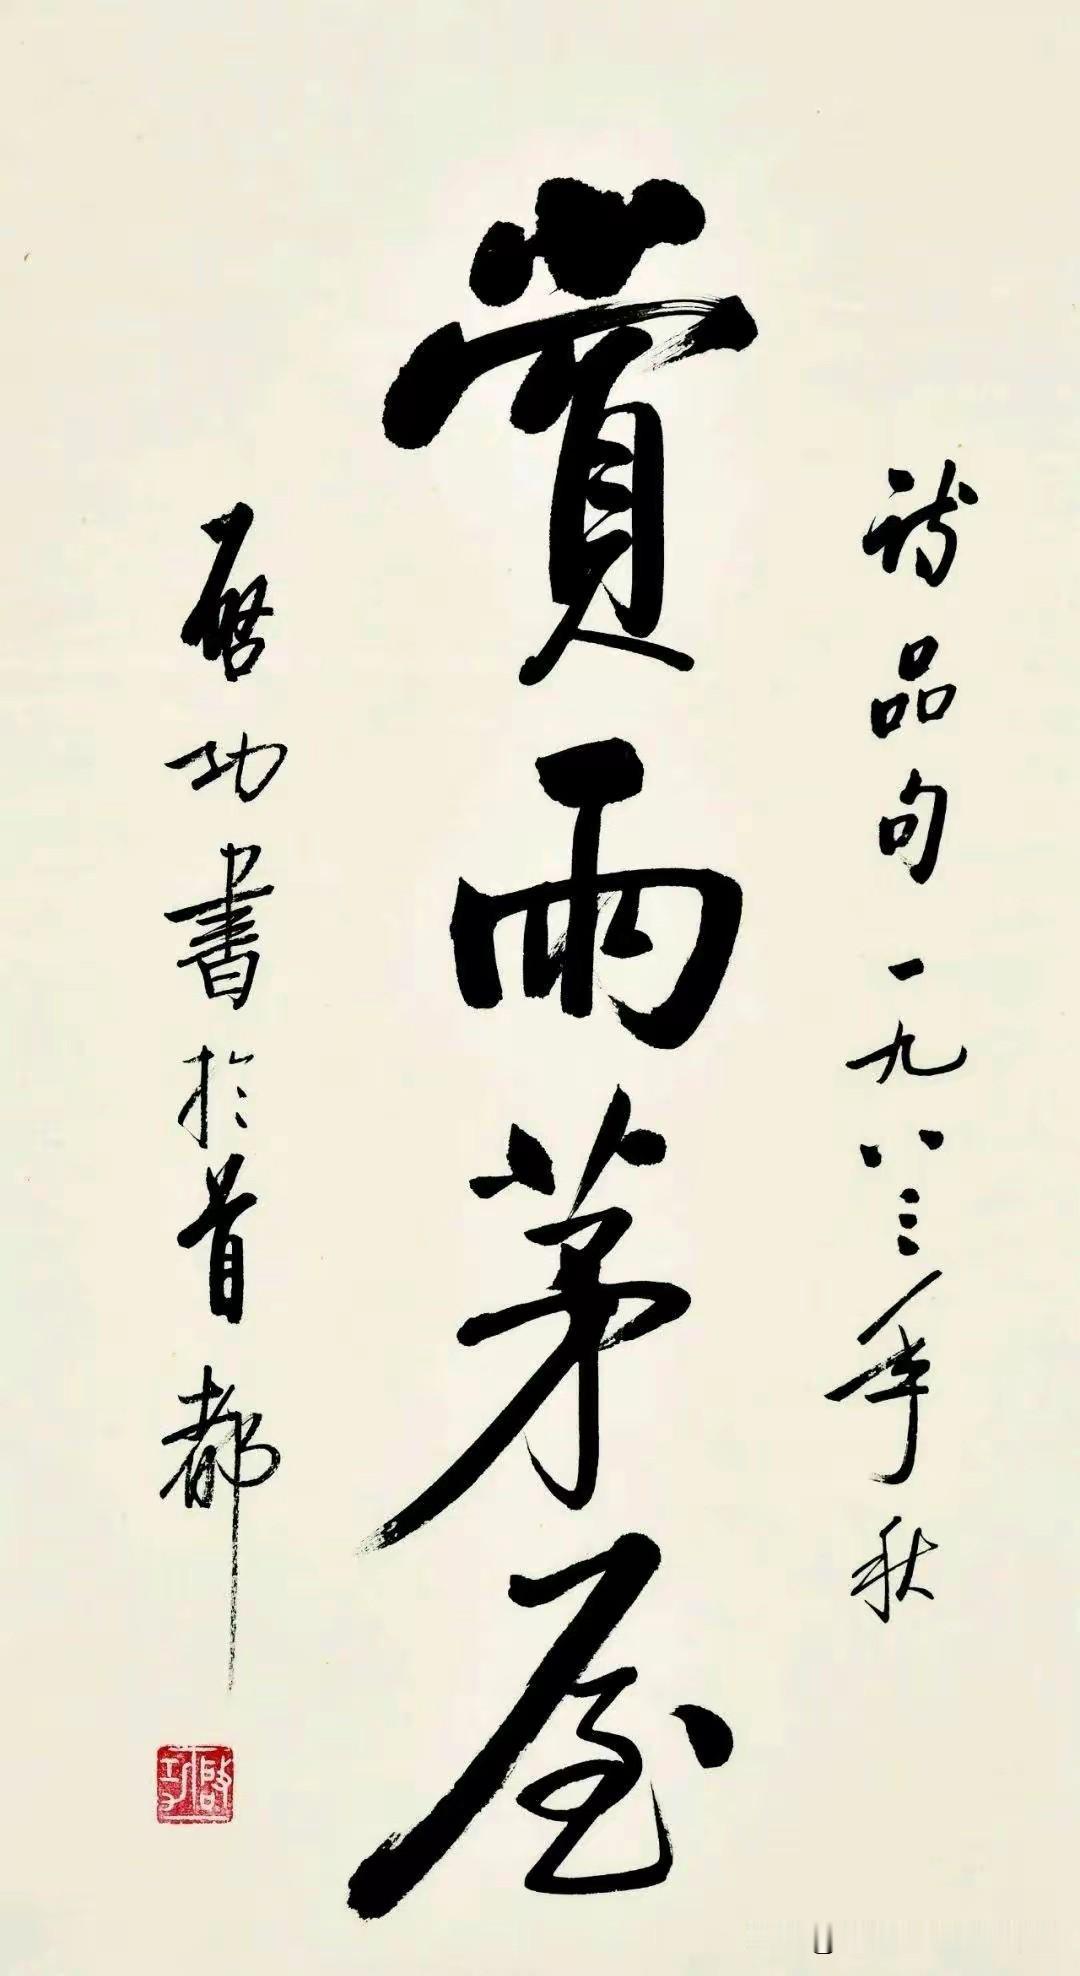 詩品句一九八三年秋
賞雨茅屋
啟功書於首都
啟功